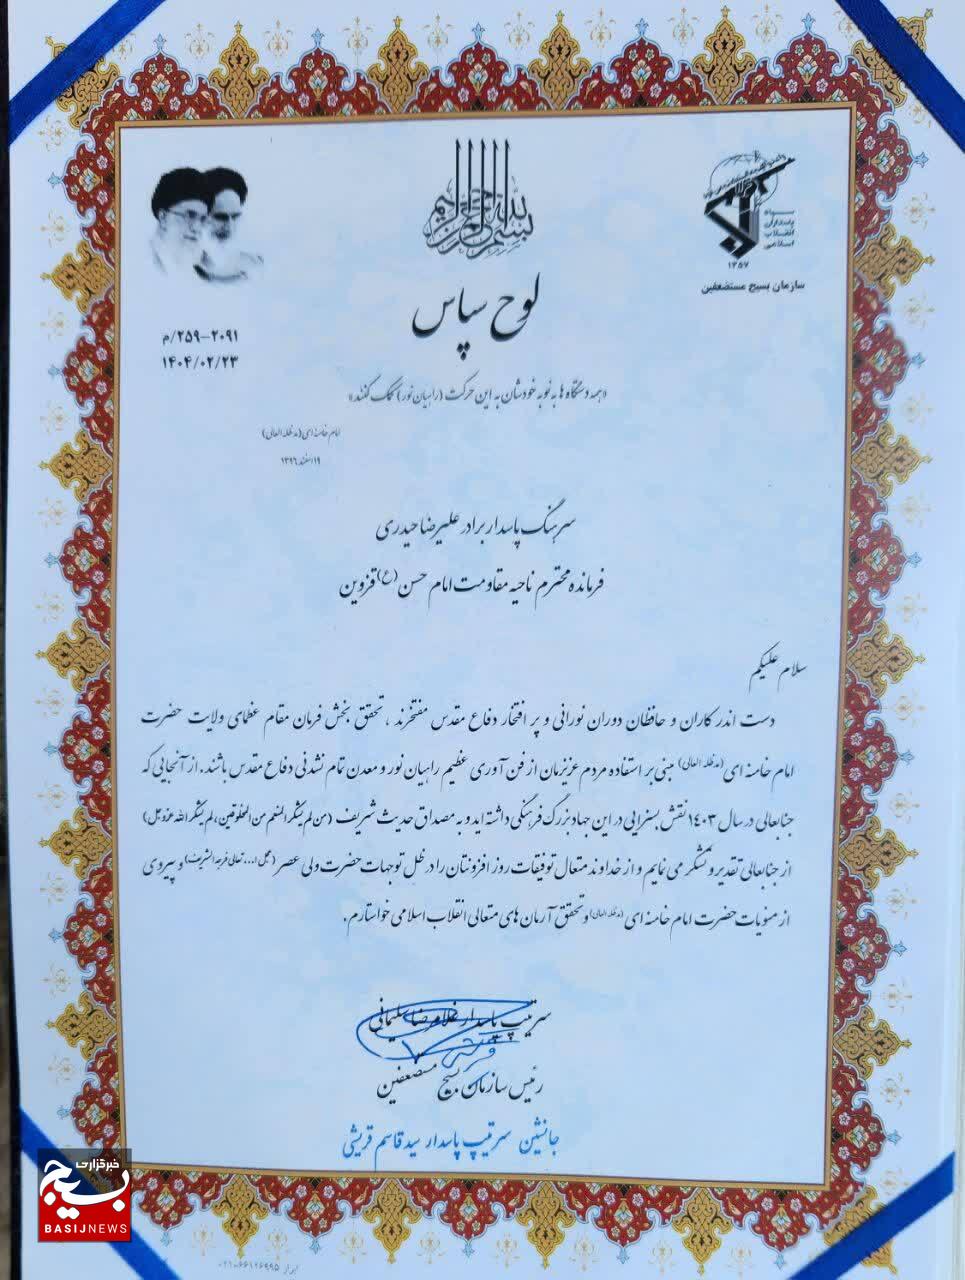 بسم الله الرحمن الرحیم
سپاه
پاسداران
انقلاب
اسلامی
۱۳۵۷
سازمان بسیج مستضعفین
لوح سپاس
۲۰۹۱-۲۵۹/م
۱۴۰۴/۰۲/۲۳
«همه دستگاه ها به نوبه خودشان به این حرکت (راهیان نور) کمک کنند»
امام خامنه ای (مدظله العالی)
۱۹ اسفند ۱۳۹۶
سرهنگ پاسدار برادر علیرضا حیدری
فرمانده محترم ناحیه مقاومت امام حسن (ع) قزوین
سلام علیکم
دست اندر کاران و حافظان دوران نورانی و پر افتخار دفاع مقدس مفتخرند ، تحقق بخش فرمان مقام عظمای ولایت حضرت
امام خامنه ای (مدظله العالی) مبنی بر استفاده مردم عزیزمان از فن آوری عظیم راهیان نور و معدن تمام نشدنی دفاع مقدس باشند. از آنجایی که
جنابعالی در سال ۱۴۰۳ نقش بسزایی در این جهاد بزرگ فرهنگی داشته اید و به مصداق حدیث شریف (من لم یشکر المنعم من المخلوقین، لم یشکر الله عزوجل)
از جنابعالی تقدیر و تشکر می نمایم و از خداوند متعال توفیقات روز افزونتان را در ظل توجهات حضرت ولی عصر (عجل ا... تعالی فرجه الشریف) و پیروی
از منویات حضرت امام خامنه ای (مدظله العالی) و تحقق آرمان های متعالی انقلاب اسلامی خواستارم.
سرتیپ پاسدار غلامرضا سلیمانی
رئیس سازمان بسیج مستضعفین
جانشین سرتیپ پاسدار سید قاسم قریشی
خبرگزاری
بسیج
BASIJNEWS
ابرار ۰۲۱-۶۶۱۲۶۹۹۵